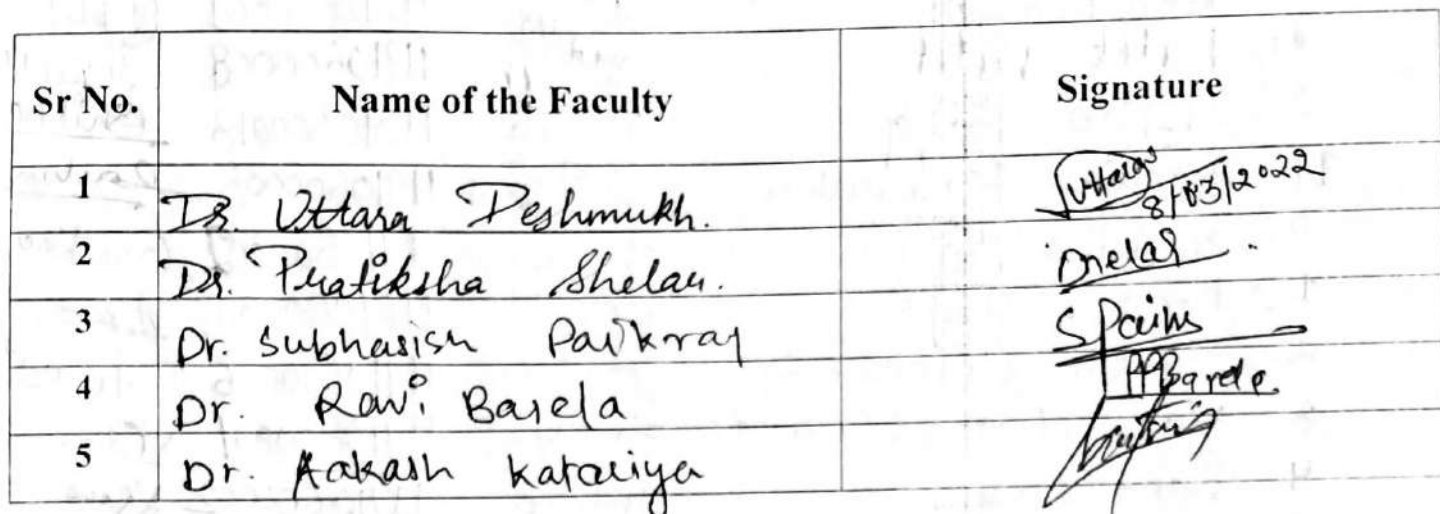 Sr No. Name of the Faculty Signature
1 Dr. Uttara Deshmukh. Uttara
8/03/2022
2 Dr. Pratiksha Shelar. Shelar
3 Dr. Subhasish Paikray
4 Dr. Ravi Barela Barela
5 Dr. Aakash Katariya